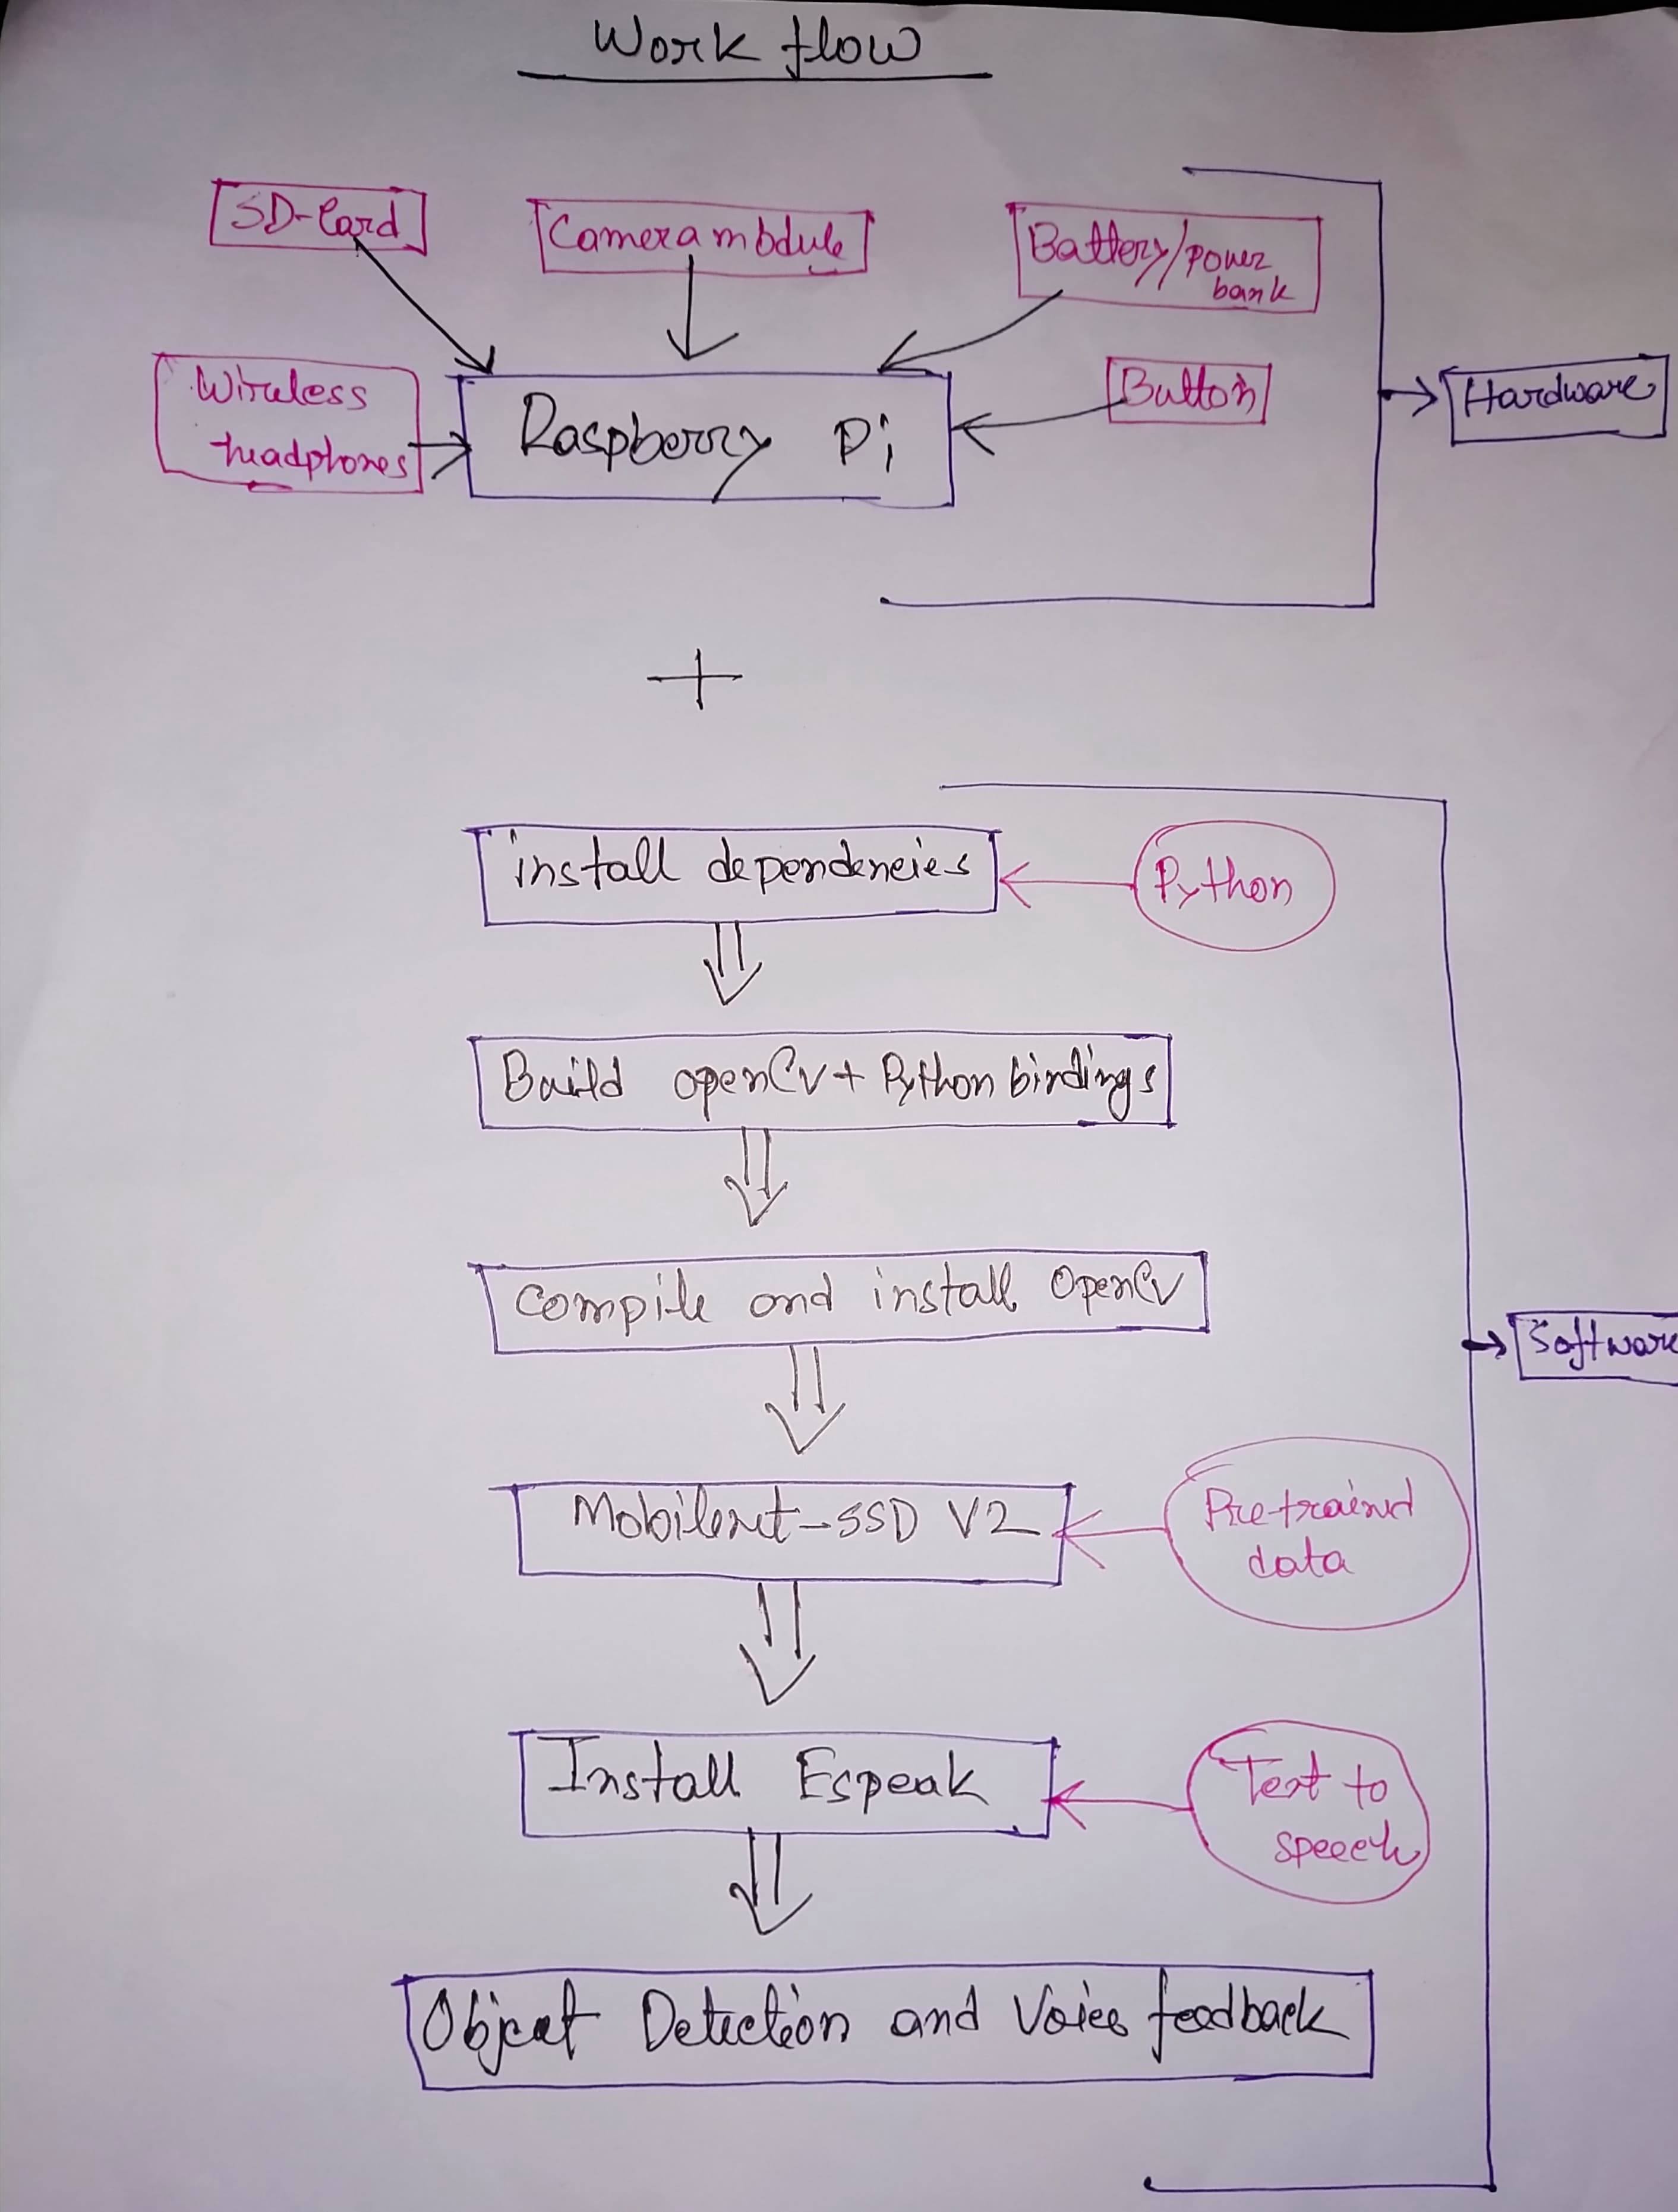 Work flow
SD-Card
Camera module
Battery/power
bank
Wireless
headphones
Raspberry Pi
Button
Hardware
+
install dependencies
Python
Build openCv + Python bindings
Compile and install OpenCv
Software
Mobilenet-SSD V2
Pre-trained
data
Install Espeak
Text to
speech
Object Detection and Voice feedback